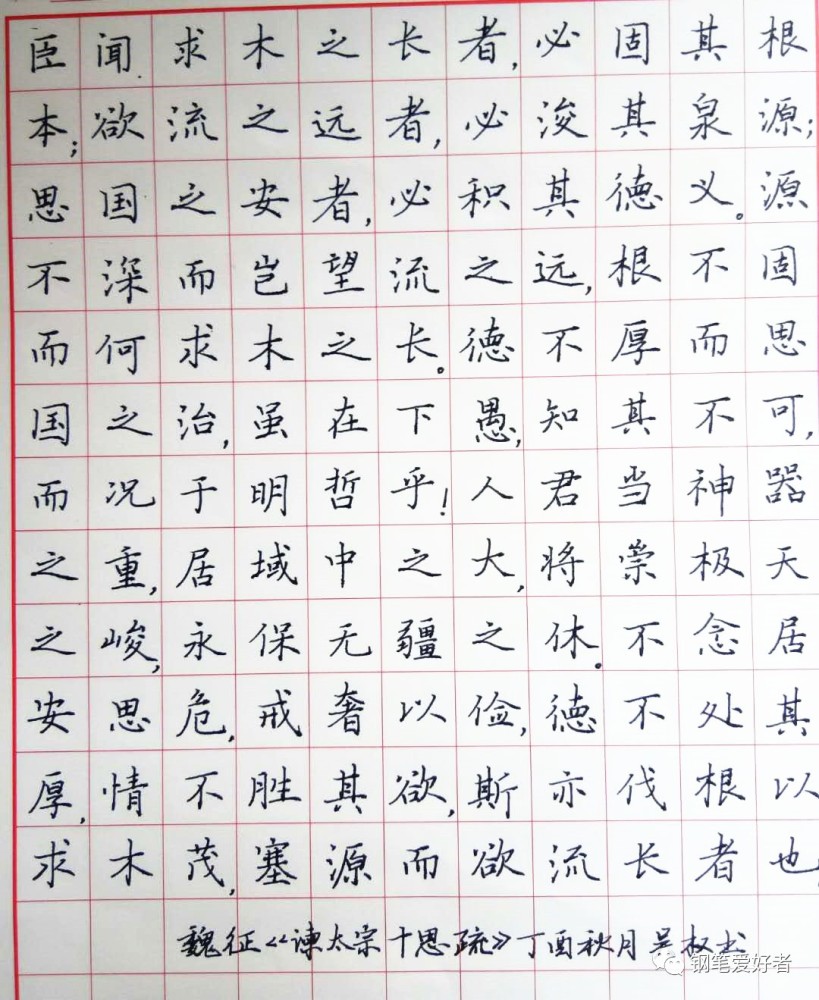 臣闻求木之长者,必固其根
本;欲流之远者,必浚其泉源;
思国之安者,必积其德义。源
不深而岂望流之远,根不固
而何求木之长。德不厚而思
国之治,虽在下愚,知其不可,
而况于明哲乎!人君当神器
之重,居域中之大,将崇极天
之峻,永保无疆之休。不念居
安思危,戒奢以俭,德不处其
厚,情不胜其欲,斯亦伐根以
求木茂,塞源而欲流长者也,
魏征《谏太宗十思疏》丁酉秋月吴权书
钢笔爱好者